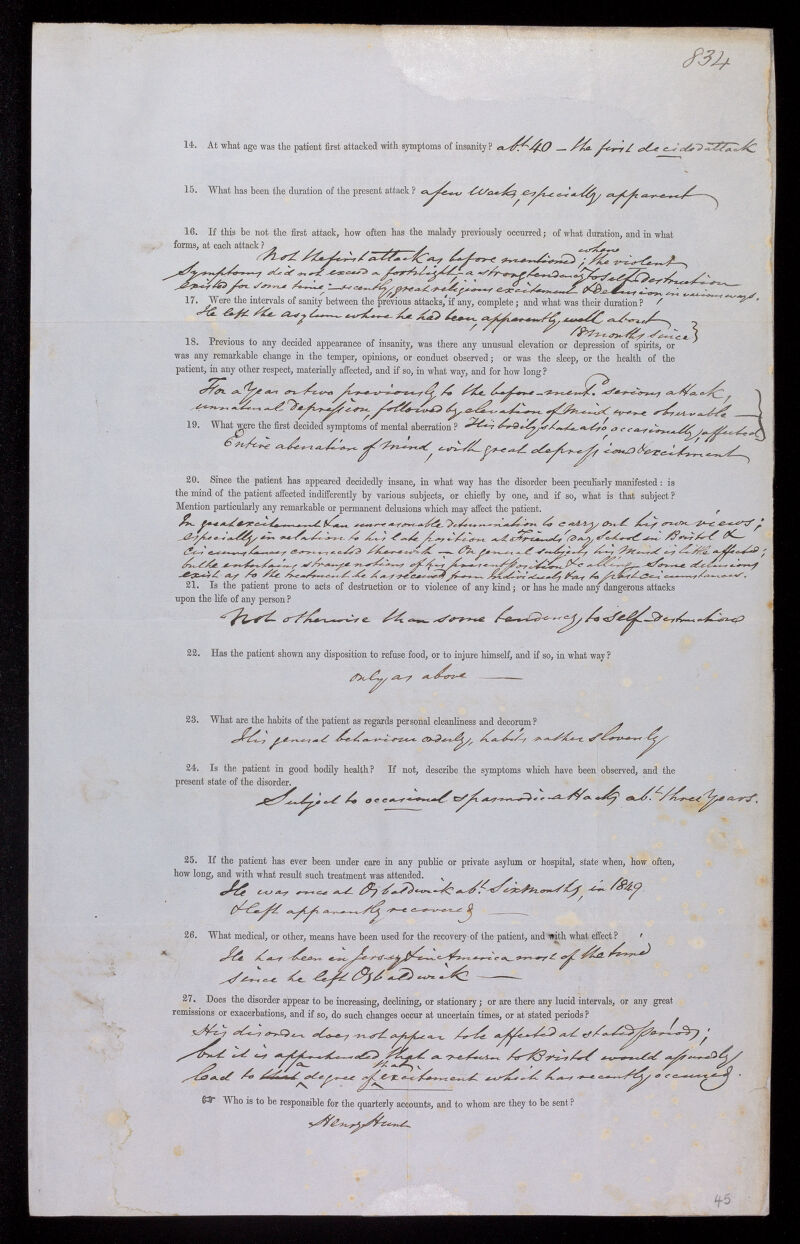 834
14. At what age was the patient first attacked with symptoms of insanity? abt. 40 – the first decided attack
15. What has been the duration of the present attack? a few weeks, especially apparent
16. If this be not the first attack, how often has the malady previously occurred; of what duration, and in what
forms, at each attack?
Not the first attack as before mentioned; when the violent
Symptoms did not exceed a fortnight – a strong tendency to self-destruction
existed for some time, – recently, great religious excitement & delusion in various ways.
17. Were the intervals of sanity between the previous attacks, if any, complete; and what was their duration?
He left the asylum where he had been, apparently well about
18 months since
18. Previous to any decided appearance of insanity, was there any unusual elevation or depression of spirits, or
was any remarkable change in the temper, opinions, or conduct observed; or was the sleep, or the health of the
patient, in any other respect, materially affected, and if so, in what way, and for how long?
For a Year or two previously to the before-mentd. serious attack,
unnatural depression, followed by elevation of mind were observable –
19. What were the first decided symptoms of mental aberration? His bodily state also occasionally affected
Entire aberration of mind, with great depression & excitement
20. Since the patient has appeared decidedly insane, in what way has the disorder been peculiarly manifested: is
the mind of the patient affected indifferently by various subjects, or chiefly by one, and if so, what is that subject?
Mention particularly any remarkable or permanent delusions which may affect the patient.
In great excitement & an unreasonable determination to carry out his own views;
especially in relation to his late position at Friends' Day School in Bristol &
Circumstances connected therewith – On general subjects his mind is little affected;
but he entertains strange notions of his present position & calling. Some delusions
exist as to the treatment he has received from individuals & as to past circumstances.
21. Is the patient prone to acts of destruction or to violence of any kind; or has he made any dangerous attacks
upon the life of any person?
Not otherwise than some tendency to self-destruction
22. Has the patient shown any disposition to refuse food, or to injure himself, and if so, in what way?
only as above
23. What are the habits of the patient as regards personal cleanliness and decorum?
His general behaviour orderly, habits rather slovenly
24. Is the patient in good bodily health? If not, describe the symptoms which have been observed, and the
present state of the disorder.
Subject to occasional spasmodic attacks abt. three Years.
25. If the patient has ever been under care in any public or private asylum or hospital, state when, how often,
how long, and with what result such treatment was attended.
He was once at Osbaldwick abt. Six months, in 1849
& left apparently recovered
26. What medical, or other, means have been used for the recovery of the patient, and with what effect?
He has been in Jersey & in America most of the time
since he left Osbaldwick
27. Does the disorder appear to be increasing, declining, or stationary; or are there any lucid intervals, or any great
remissions or exacerbations, and if so, do such changes occur at uncertain times, or at stated periods?
His disorder does not appear to be affected at stated periods;
but it is apprehended that a return to Bristol would assuredly
lead to a degree of that excitement which has recently occurred.
☞ Who is to be responsible for the quarterly accounts, and to whom are they to be sent?
Henry Hunt
45